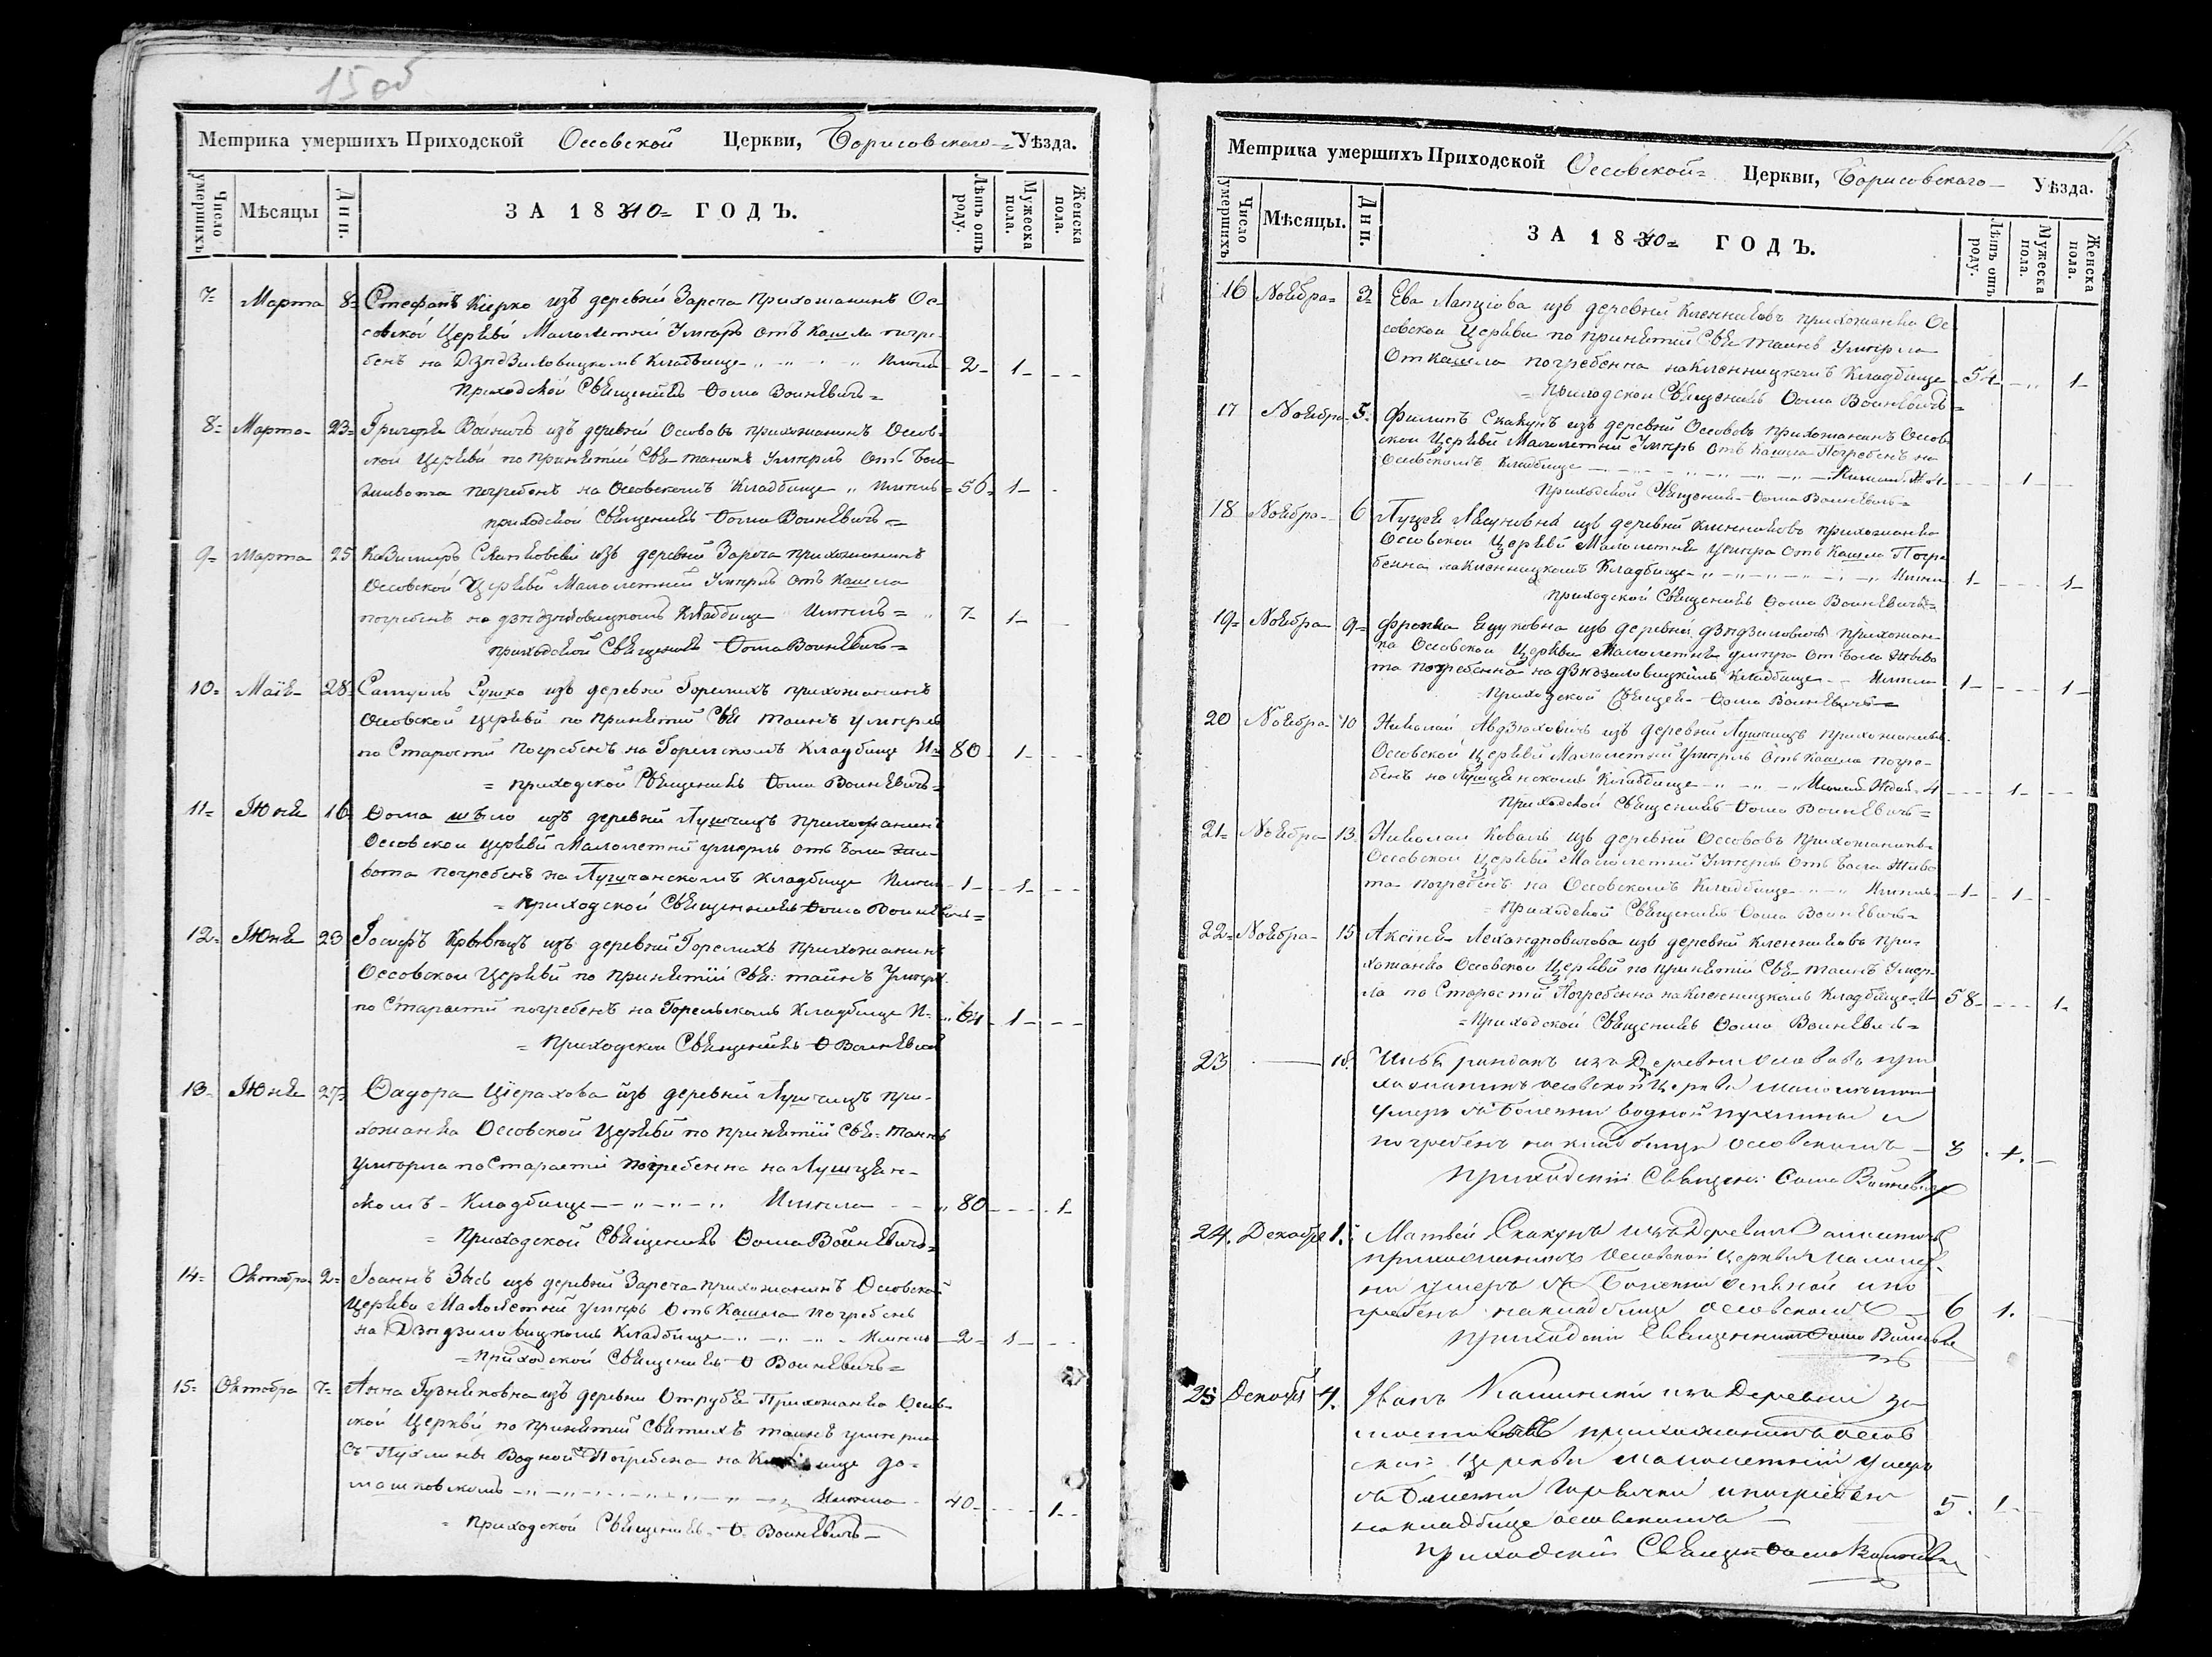 15 об
Метрика умершихъ Приходской Оссовской Церкви, Борисовскаго Уѣзда.
Число умершихъ Мѣсяцы Дни. ЗА 1840 ГОДЪ. Лѣтъ отъ роду. Мужеска пола. Женска пола.
7 Марта 8 Стефанъ Кіерко изъ деревни Зареча прихожанинъ Ос-
совской Церкви Малолетній Умеръ отъ Кашля погре-
бенъ на Дзядзиловицкомъ Кладбище 2 1
Приходской Священникъ Фома Воиневичъ
8 Марта 23 изъ деревни Осововъ прихожанинъ Оссов-
ской Церкви по принятіи Свя. таинъ Умерлъ отъ Боли
живота погребенъ на Оссовскомъ Кладбище 56 1
приходской Священникъ Фома Воиневичъ
9 Марта 25 Казимиръ изъ деревни Зареча прихожанинъ
Оссовской Церкви Малолетній Умерлъ отъ Кашля
погребенъ на Кладбище 7 1
приходской Священникъ Фома Воиневичъ
10 Маія 28 Самуилъ Сушко изъ деревни Горелихъ прихожанинъ
Оссовской церкви по принятіи Свя таинъ умерлъ
по Старости погребенъ на Горелскомъ Кладбище 80 1
приходской Священникъ Фома Воиневичъ
11 Юня 16 Фома изъ деревни Лушчицъ прихожанинъ
Оссовскои церкви Малолетній умерлъ отъ Боли жи-
вота погребенъ на Лушчанскомъ Кладбище 1 1
приходской Священникъ Фома Воиневичъ
12 Юня 23 Іосифъ изъ деревни Горелихъ прихожанинъ
Оссовскои Церкви по принятіи Свя: тайнъ Умерлъ
по Старости погребенъ на Горельскомъ Кладбище 64 1
Приходскои Священникъ Ф Воиневичъ
13 Юня 27 Фадора изъ деревни Лушчицъ при-
хожанка Оссовской Церкви по принятіи Свя. таинъ
Умерла по Старасти погребенна на Лушцан-
скомъ Кладбище 80 1
Приходской Священникъ Фома Воиневичъ
14 Октобра 2 Іоаннъ изъ деревни Зареча прихожанинъ Оссовской
Церкви Малолетній умеръ отъ Кашла погребенъ
на Дзядзиловицкомъ Кладбище 2 1
приходской Священникъ Ф Воиневичъ
15 Октобра 7 Анна изъ деревни Отрубка Прихожанка Оссов-
ской Церкви по принятіи Святихъ таинъ умерла
съ Пухлины Водной Погребена на Кладбище до-
машковскомъ 40 1
приходской Священникъ Ф. Воиневичъ
Метрика умершихъ Приходской Оссовской Церкви, Борисовскаго Уѣзда.
Число умершихъ Мѣсяцы. Дни. ЗА 1840 ГОДЪ. Лѣтъ отъ роду. Мужеска пола. Женска пола.
16 Ноября 3 Ева изъ деревни Кленниковъ прихожанка Ос-
совской Церкви по принятіи Свя таинъ Умерла
От кашла погребенна на Кленницкомъ Кладбище 54 1
Приходскои Священникъ Фома Воиневичъ
17 Ноября 5 Филипъ Скакунъ изъ деревни Оссововъ прихожанинъ Оссов-
скои Церкви Малолетній Умеръ отъ Кашла Погребенъ на
Осовскомъ Кладбище 1
приходской Священникъ Фома Воиневичъ
18 Ноября 6 изъ деревни Кленниковъ прихожанка
Оссовской Церкви Малолетняя умерла отъ Кашла Погре-
бенна на Кленницкомъ Кладбище 1 1
приходской Священникъ Фома Воиневичъ
19 Ноября 9 изъ деревни Дзядзиловичъ прихожан-
ка Оссовской Церкви Малолетняя умерла от Боли Живо
та погребенна на Дзядзиловицкимъ Кладбище 1 1
приходской Священ. Фома Воиневичъ
20 Ноября 10 Николай Авдзюховичъ изъ деревни Лушчицъ прихожанинъ
Оссовской Церкви Малолетній Умерлъ отъ Кашла погре-
бенъ на Лушцанскомъ Кладбище 4 1
Приходской Священникъ Фома Воиневичъ
21 Ноября 13 Николаи Коваль изъ деревни Оссововъ прихожанинъ
Оссовской Церкви Малолетній Умерлъ отъ Боли Живо
та погребенъ на Оссовскомъ Кладбище 1 1
Приходской Священникъ Фома Воиневичъ
22 Ноября 15 Аксінія изъ деревни Кленниковъ при-
хожанка Оссовской Церкви по принятіи Свя таинъ Умер-
ла по Старости Погребенна на Кленницкомъ Кладбище 58 1
Приходской Священникъ Фома Воиневичъ
23 18. изъ Деревни Осововъ при
хожанинъ осовской Церкви малолетни
умеръ съ болезни водной пухлины и
погребенъ на кладбище осовскомъ 3 1.
Приходскій Священ: Фома Воиневичъ
24. Декабря 1. Матвей Скакунъ изъ Деревни
прихожанинъ осовской Церкви малолет-
ни умеръ съ Болезни и по
гребенъ на кладбище осовскомъ 6 1.
приходскій Священникъ Фома Воиневичъ
25 Декабря 4. Іванъ изъ Деревни За
прихожанинъ осов
ской Церкви малолетній умеръ
съ болезни горячки и погребенъ
на кладбище осовскомъ 5. 1
приходскій Священ Фома Воиневичъ